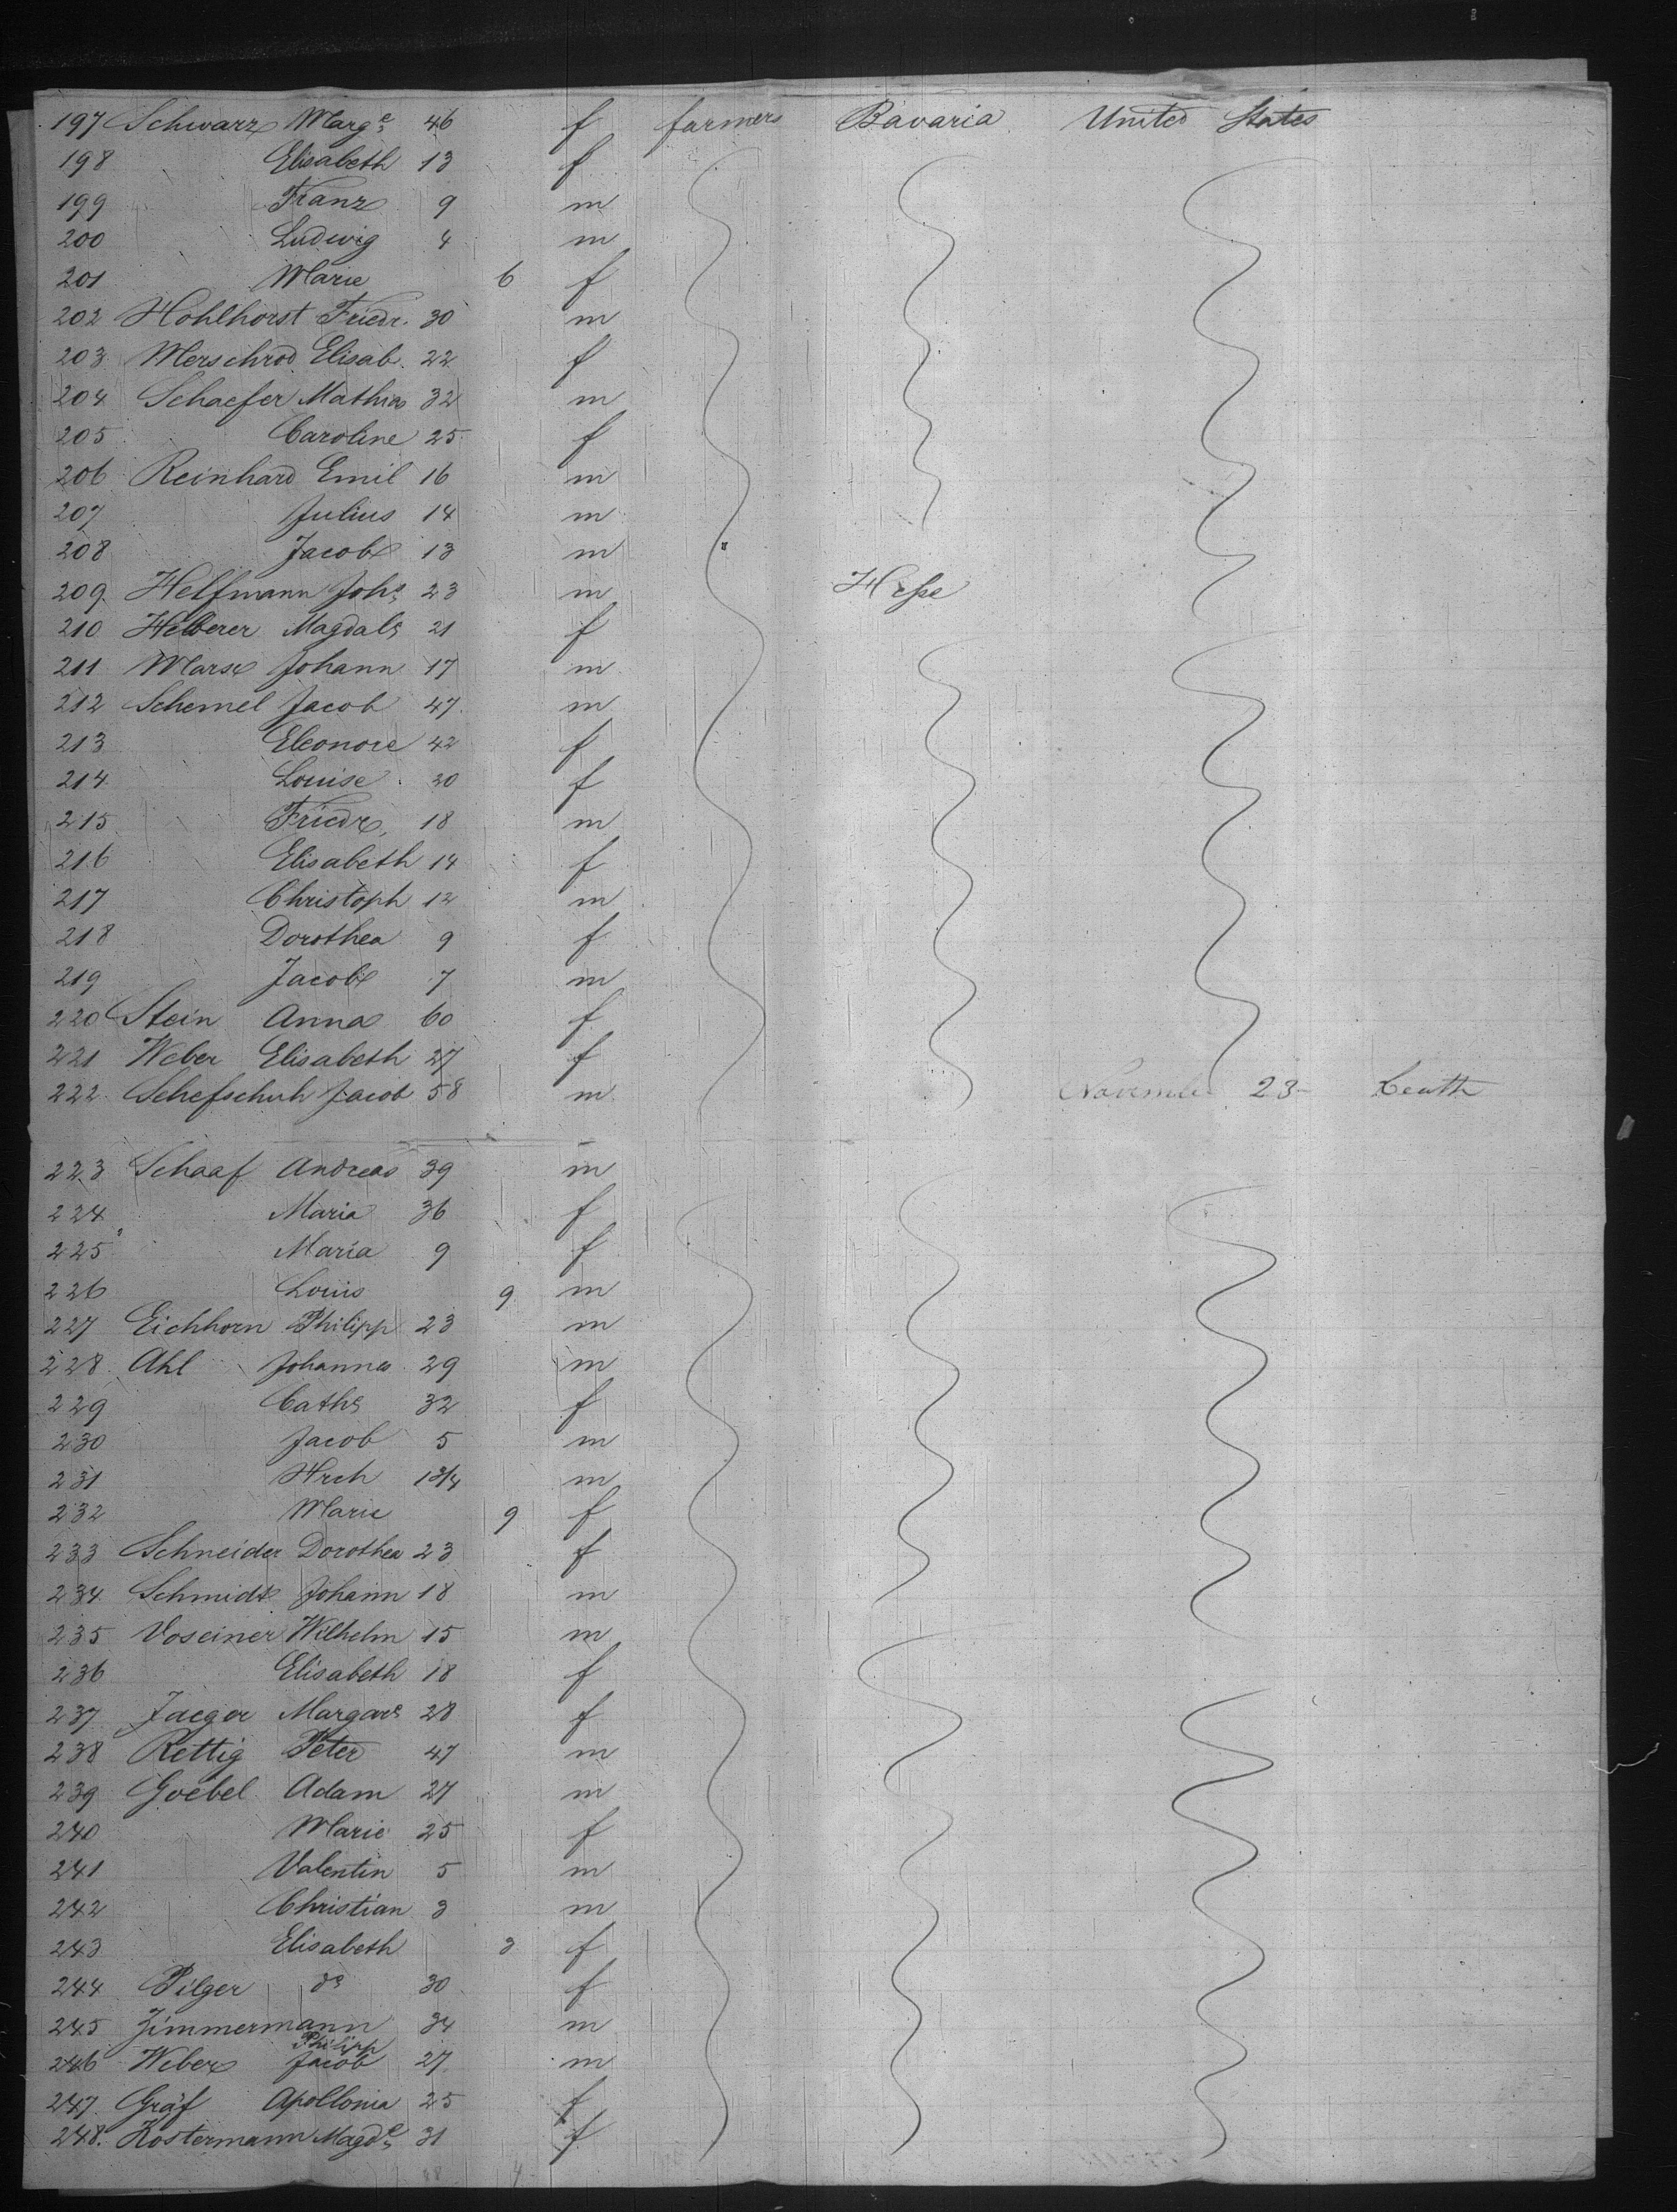 197 Schwarz Marg.e 46 f farmers Bavaria United States
198 Elisabeth 13 f
199 Franz 9 m
200 Ludwig 4 m
201 Marie 6 f
202 Hohlhorst Friedr. 30 m
203 Merschrod Elisab. 22 f
204 Schaefer Mathias 32 m
205 Caroline 25 f
206 Reinhard Emil 16 m
207 Julius 14 m
208 Jacob 13 m
209 Helfmann Johs 23 m Hesse
210 Helberer Magdale 21 f
211 Marx Johann 17 m
212 Schemel Jacob 47 m
213 Eleonore 42 f
214 Louise 20 f
215 Friedr. 18 m
216 Elisabeth 14 f
217 Christoph 12 m
218 Dorothea 9 f
219 Jacob 7 m
220 Stein Anna 60 f
221 Weber Elisabeth 27 f
222 Schefschuh Jacob 58 m November 23 Death
223 Schaaf Andreas 39 m
224 Maria 36 f
225 Maria 9 f
226 Louis 9 m
227 Eichhorn Philipp 23 m
228 Ahl Johannes 29 m
229 Cathe 32 f
230 Jacob 5 m
231 Hrch 1 3/4 m
232 Marie 9 f
233 Schneider Dorothea 23 f
234 Schmidt Johann 18 m
235 Voseiner Wilhelm 15 m
236 Elisabeth 18 f
237 Jaeger Margare 28 f
238 Rettig Peter 47 m
239 Goebel Adam 27 m
240 Marie 25 f
241 Valentin 5 m
242 Christian 3 m
243 Elisabeth 3 f
244 Pilger do 30 f
245 Zimmermann Philipp 34 m
246 Weber Jacob 27 m
247 Gräf Apollonia 25 f
248. Kostermann Magde 31 f